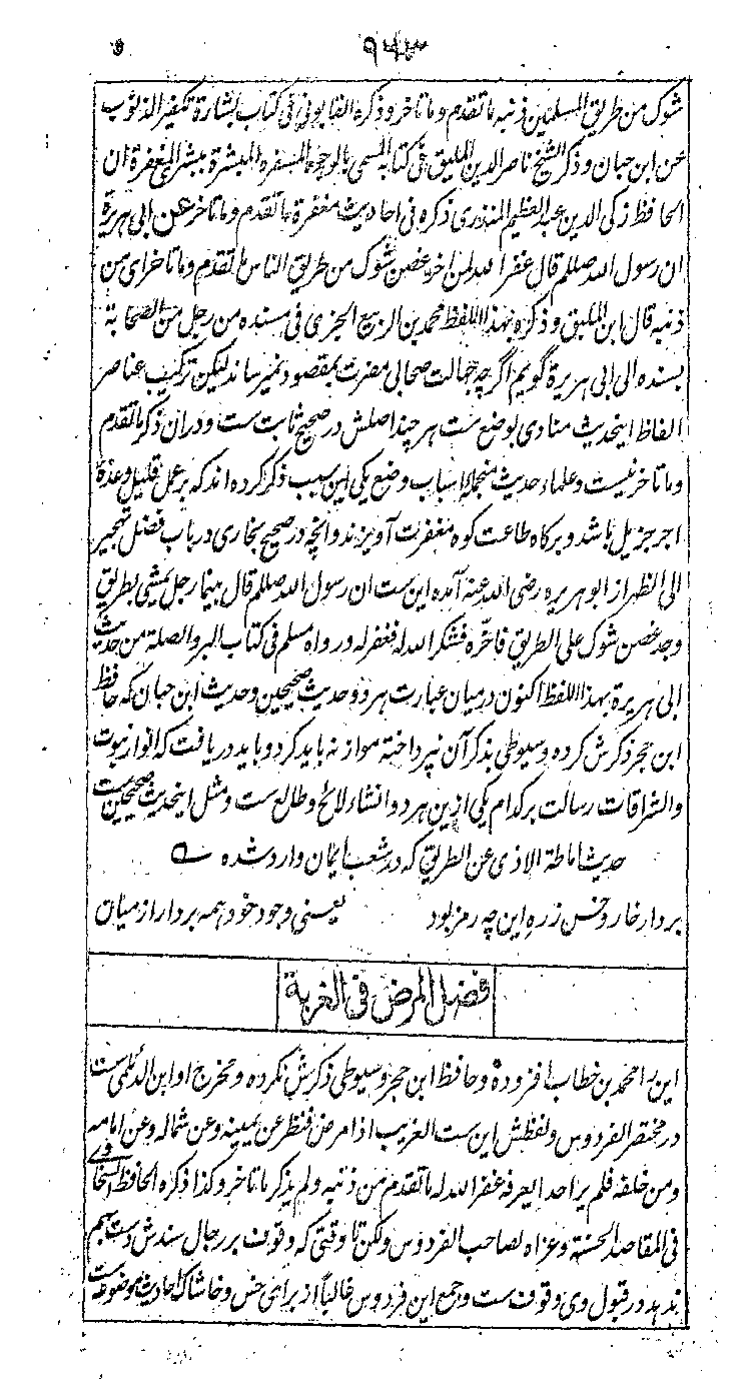 ۹۴۳
شوک من طریق المسلمین ذنبه ما تقدم وما تاخر وذکره القابونی فی کتاب بشارة تکفیر الذنوب
عن ابن حبان وذکر الشیخ ناصر الدین الملیق فی کتابه المسمی بالوجوه المسفره المبشرة ببشری المغفرة ان
الحافظ زکی الدین عبد العظیم المنذری ذکره فی احادیث مغفرة ما تقدم وما تاخر عن ابی هریرة
ان رسول الله صللم قال غفر الله لمن اخر غصن شوک من طریق الناس ما تقدم وما تاخر ای من
ذنبه قال ابن الملیق وذکره بهذا اللفظ محمد بن الربیع الجیزی فی مسنده من رجل من الصحابة
بسنده الی ابی هریرة گویم اگرچه جهالت صحابی مضرت بمقصود نمیرساند لیکن ترکیب عناصر
الفاظ اینحدیث منادی بوضع ست هر چند اصلش در صحیح ثابت ست و دران ذکر ما تقدم
وما تاخر نیست وعلماء حدیث منجمله اسباب وضع یکی این سبب ذکر کرده اند که بر عمل قلیل وعدهٔ
اجر جزیل باشد و بر کاه طاعت کوه مغفرت آویزند وانچه در صحیح بخاری در باب فضل تهجیر
الی الظهر از ابو هریره رضی الله عنه آمده این ست ان رسول الله صللم قال بینما رجل یمشی بطریق
وجد غصن شوک علی الطریق فاخّره فشکر الله له فغفر له ورواه مسلم فی کتاب البر والصلة من حدیث
ابی هریرة بهذا اللفظ اکنون درمیان عبارت هر دو حدیث صحیحین وحدیث ابن حبان که حافظ
ابن حجر ذکرش کرده وسیوطی بذکر آن نپرداخته موازنه باید کرد و باید دریافت که انوار نبوت
واشراقات رسالت بر کدام یکی ازین هر دو انشاء لائح وطالع ست ومثل اینحدیث صحیحین ست
حدیث اماطة الاذی عن الطریق که در شعب ایمان وارد شده
بردار خار و خس زره این چه رمز بود یعنی وجود خود همه بردار از میان
فضل المرض فی الغربة
این را محمد بن خطاب افزوده وحافظ ابن حجر وسیوطی ذکرش نکرده ومخرج او ابن الدیلمی ست
در مختصر الفردوس ولفظش این ست الغریب اذا مرض فنظر عن یمینه وعن شماله وعن امامه
ومن خلفه فلم یر احدا یعرفه غفر الله له ما تقدم من ذنبه ولم یذکر ما تاخر وکذا ذکره الحافظ السخاوی
فی المقاصد الحسنة وعزاه لصاحب الفردوس ولکن تا وقتی که وقوف بر رجال سندش دست بهم
ندهد در قبول وی وقوف ست وجمع این فردوس غالباً از برای خس وخاشاک احادیث موضوعه ست